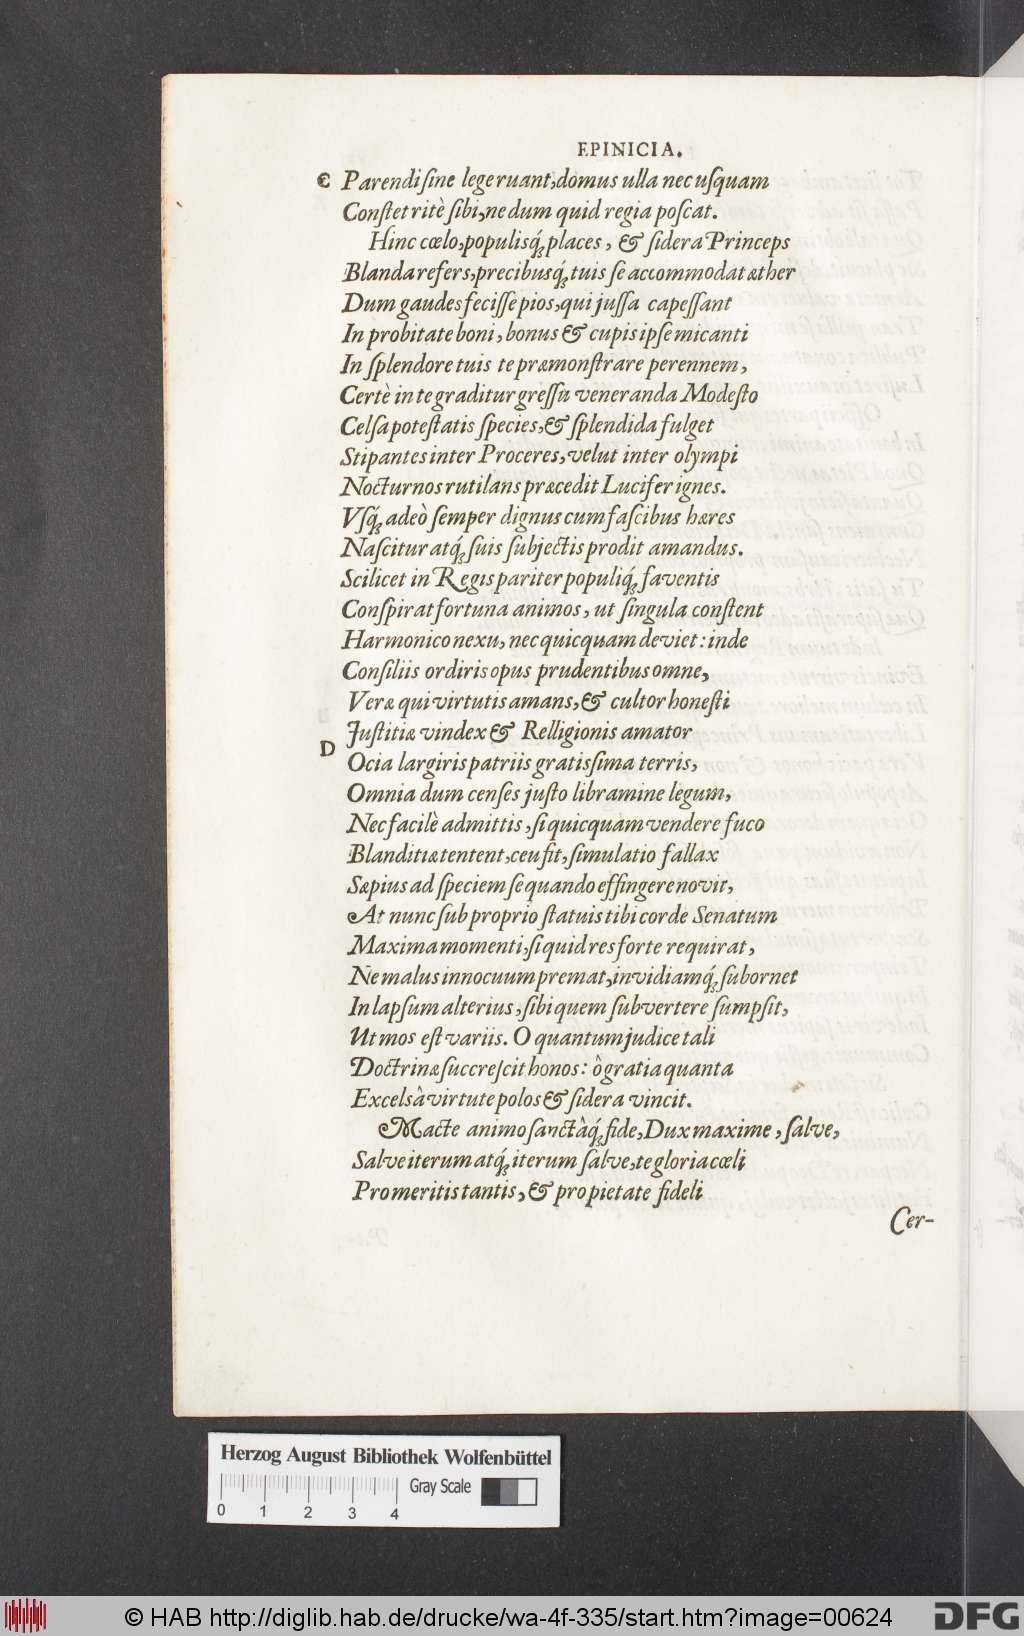 EPINICIA.
C Parendi ſine lege ruant, domus ulla nec uſquam
Conſtet ritè ſibi, ne dum quid regia poſcat.
Hinc cœlo, populisq́; places, & ſidera Princeps
Blanda refers, precibusq́; tuis ſe accommodat æther
Dum gaudes feciſſe pios, qui juſſa capeſſant
In probitate boni, bonus & cupis ipſe micanti
In ſplendore tuis te præmonſtrare perennem,
Certè in te graditur greſſu veneranda Modeſto
Celſa poteſtatis ſpecies, & ſplendida fulget
Stipantes inter Proceres, velut inter olympi
Nocturnos rutilans præcedit Lucifer ignes.
Vſq́; adeò ſemper dignus cum faſcibus hæres
Naſcitur atq́; ſuis ſubjectis prodit amandus.
Scilicet in Regis pariter populiq́; faventis
Conſpirat fortuna animos, ut ſingula conſtent
Harmonico nexu, nec quicquam deviet: inde
Conſiliis ordiris opus prudentibus omne,
Veræ qui virtutis amans, & cultor honeſti
Juſtitiæ vindex & Relligionis amator
D Ocia largiris patriis gratissima terris,
Omnia dum cenſes juſto libramine legum,
Nec facilè admittis, ſi quicquam vendere fuco
Blanditiæ tentent, ceu fit, ſimulatio fallax
Sæpius ad ſpeciem ſe quando effingere novit,
At nunc ſub proprio ſtatuis tibi corde Senatum
Maxima momenti, ſi quid res forte requirat,
Ne malus innocuum premat, invidiamq́; ſubornet
In lapſum alterius, ſibi quem ſubvertere ſumpſit,
Ut mos eſt variis. O quantum judice tali
Doctrinæ ſuccreſcit honos: ò gratia quanta
Excelsâ virtute polos & ſidera vincit.
Macte animo ſanctâq́; fide, Dux maxime, ſalve,
Salve iterum atq́; iterum ſalve, te gloria cœli
Pro meritis tantis, & pro pietate fideli
Cer-
Herzog August Bibliothek Wolfenbüttel
Gray Scale
0 1 2 3 4
© HAB http://diglib.hab.de/drucke/wa-4f-335/start.htm?image=00624
DFG